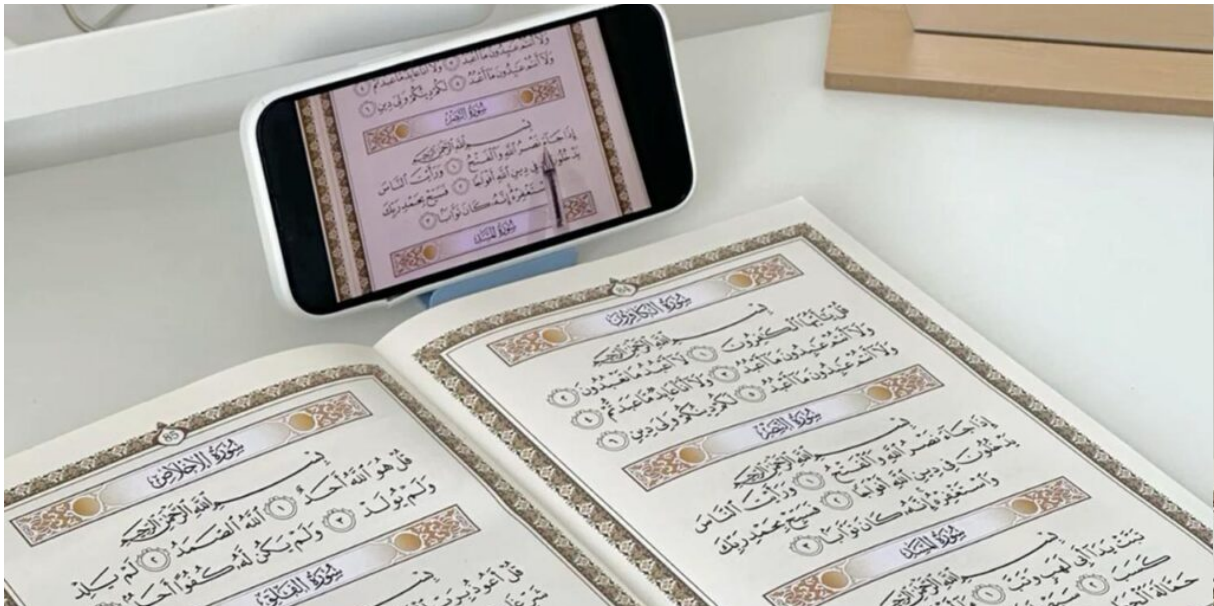 وَلَآ أَنتُمْ عَٰبِدُونَ مَآ أَعْبُدُ ٣ وَلَآ أَنَا۠ عَابِدٌ مَّا عَبَدتُّمْ ٤
وَلَآ أَنتُمْ عَٰبِدُونَ مَآ أَعْبُدُ ٥ لَكُمْ دِينُكُمْ وَلِىَ دِينِ ٦
سُورَةُ النَّصْرِ
بِسْمِ ٱللَّهِ ٱلرَّحْمَٰنِ ٱلرَّحِيمِ
إِذَا جَآءَ نَصْرُ ٱللَّهِ وَٱلْفَتْحُ ١ وَرَأَيْتَ ٱلنَّاسَ
يَدْخُلُونَ فِى دِينِ ٱللَّهِ أَفْوَاجًا ٢ فَسَبِّحْ بِحَمْدِ رَبِّكَ
ٱسْتَغْفِرْهُ إِنَّهُۥ كَانَ تَوَّابًۢا ٣
سُورَةُ المَسَدِ
84
سُورَةُ الكَافِرُونَ
بِسْمِ ٱللَّهِ ٱلرَّحْمَٰنِ ٱلرَّحِيمِ
قُلْ يَٰٓأَيُّهَا ٱلْكَٰفِرُونَ ١ لَآ أَعْبُدُ مَا تَعْبُدُونَ ٢
وَلَآ أَنتُمْ عَٰبِدُونَ مَآ أَعْبُدُ ٣ وَلَآ أَنَا۠ عَابِدٌ مَّا عَبَدتُّمْ ٤
وَلَآ أَنتُمْ عَٰبِدُونَ مَآ أَعْبُدُ ٥ لَكُمْ دِينُكُمْ وَلِىَ دِينِ ٦
سُورَةُ النَّصْرِ
بِسْمِ ٱللَّهِ ٱلرَّحْمَٰنِ ٱلرَّحِيمِ
إِذَا جَآءَ نَصْرُ ٱللَّهِ وَٱلْفَتْحُ ١ وَرَأَيْتَ ٱلنَّاسَ
يَدْخُلُونَ فِى دِينِ ٱللَّهِ أَفْوَاجًا ٢ فَسَبِّحْ بِحَمْدِ رَبِّكَ
وَٱسْتَغْفِرْهُ إِنَّهُۥ كَانَ تَوَّابًۢا ٣
سُورَةُ المَسَدِ
بِسْمِ ٱللَّهِ ٱلرَّحْمَٰنِ ٱلرَّحِيمِ
تَبَّتْ يَدَآ أَبِى لَهَبٍ وَتَبَّ ١
كَسَبَ ٢
حَمَّالَةَ ٱلْحَ
85
سُورَةُ الإِخْلَاصِ
بِسْمِ ٱللَّهِ ٱلرَّحْمَٰنِ ٱلرَّحِيمِ
قُلْ هُوَ ٱللَّهُ أَحَدٌ ١ ٱللَّهُ ٱلصَّمَدُ ٢ لَمْ يَلِدْ
وَلَمْ يُولَدْ ٣ وَلَمْ يَكُن لَّهُۥ كُفُوًا أَحَدٌۢ
سُورَةُ الفَلَقِ
بِسْمِ
قُلْ أَعُوذُ بِرَبِّ